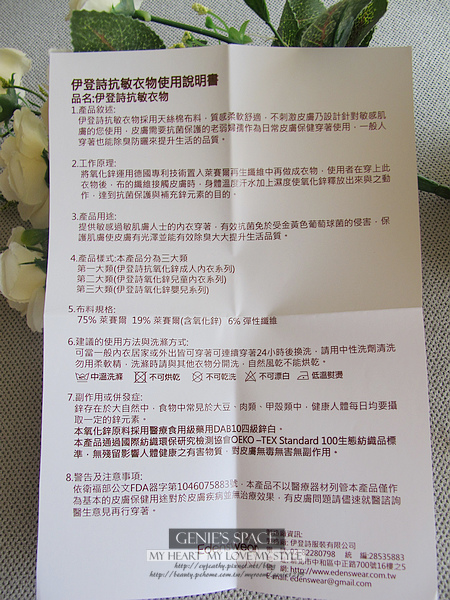 伊登詩抗敏衣物使用說明書
品名:伊登詩抗敏衣物
1.產品敘述:
伊登詩抗敏衣物採用天絲棉布料，質感柔軟舒適，不刺激皮膚乃設計針對敏感肌
膚的您使用，皮膚需要抗菌保護的老弱婦孺作為日常皮膚保健穿著使用，一般人
穿著也能除臭防曬來提升生活的品質。
2.工作原理:
將氧化鋅運用德國專利技術置入萊賽爾再生纖維中再做成衣物，使用者在穿上此
衣物後，布的纖維接觸皮膚時，身體溫度汗水加上濕度使氧化鋅釋放出來與之動
作，達到抗菌保護與補充鋅元素的目的。
3.產品用途:
提供敏感過敏肌膚人士的內衣穿著，有效抗菌免於受金黃色葡萄球菌的侵害，保
護肌膚使皮膚有光澤並能有效除臭大大提升生活品質。
4.產品樣式:本產品分為三大類
第一大類(伊登詩抗氧化鋅成人內衣系列)
第二大類(伊登詩氧化鋅兒童內衣系列)
第三大類(伊登詩氧化鋅嬰兒系列)
5.布料規格:
75% 萊賽爾 19% 萊賽爾(含氧化鋅) 6% 彈性纖維
6.建議的使用方法與洗滌方式:
可當一般內衣居家或外出皆可穿著可連續穿著24小時後換洗，請用中性洗劑清洗
勿用柔軟精，洗滌時請與其他衣物分開洗，自然風乾不能烘乾。
中溫洗滌 不可烘乾 不可乾洗 不可漂白 低溫熨燙
7.副作用或併發症:
鋅存在於大自然中，食物中常見於大豆、肉類、甲殼類中，健康人體每日均要攝
取一定的鋅元素。
本氧化鋅原料採用醫療食用級藥用DAB10四級鋅白。
本產品通過國際紡織環保研究檢測協會OEKO –TEX Standard 100生態紡織品標
準，無殘留影響人體健康之有害物質，對皮膚無毒無害無副作用。
8.警告及注意事項:
依衛福部公文FDA器字第1046075883號，本產品不以醫療器材列管本產品僅作
為基本的皮膚保健用途對於皮膚疾病並無治療效果，有皮膚問題請儘速就醫諮詢
醫生意見再行穿著。
資訊:
伊登詩服裝有限公司
2280798 統 編:28535883
中和區中正路700號16樓之5
http://www.edenswear.com.tw
edenswear@gmail.com
GENIE'S SPACE
MY HEART MY LOVE MY STYLE